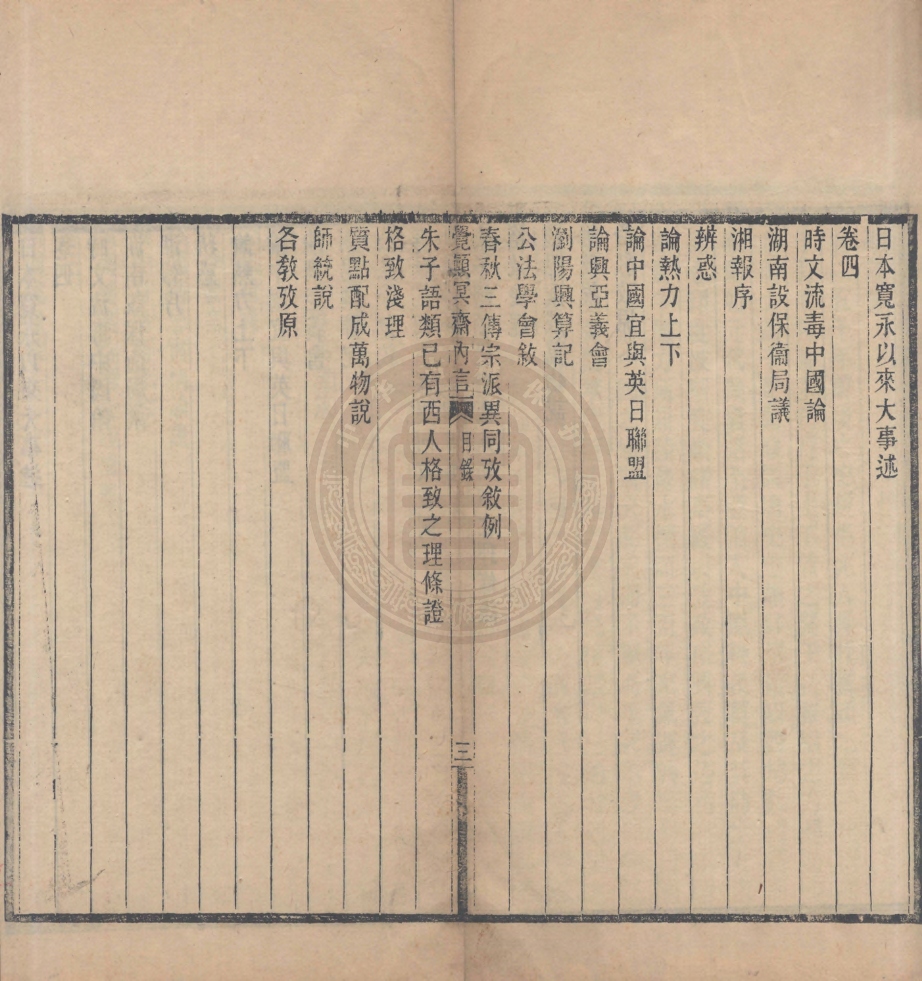 日本寬永以來大事述
卷四
時文流毒中國論
湖南設保衞局議
湘報序
辨惑
論熱力上下
論中國宜與英日聯盟
論興亞義會
瀏陽興算記
公法學會敘
春秋三傳宗派異同攷敘例
覺顚冥齋內言 目錄 三
朱子語類已有西人格致之理條證
格致淺理
質點配成萬物說
師統說
各敎攷原